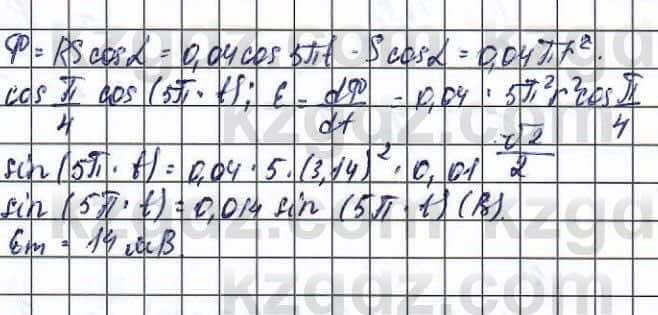 Φ = BS cosα = 0,04 cos 5πt · S cosα = 0,04 π r².
cos π/4 cos (5π · t); ε = dΦ/dt = 0,04 · 5π² r² cos π/4
sin (5π · t) = 0,04 · 5 · (3,14)² · 0,01 √2/2
sin (5π · t) = 0,014 sin (5π · t) (В).
εm = 14 мВ.
kzgdz.com